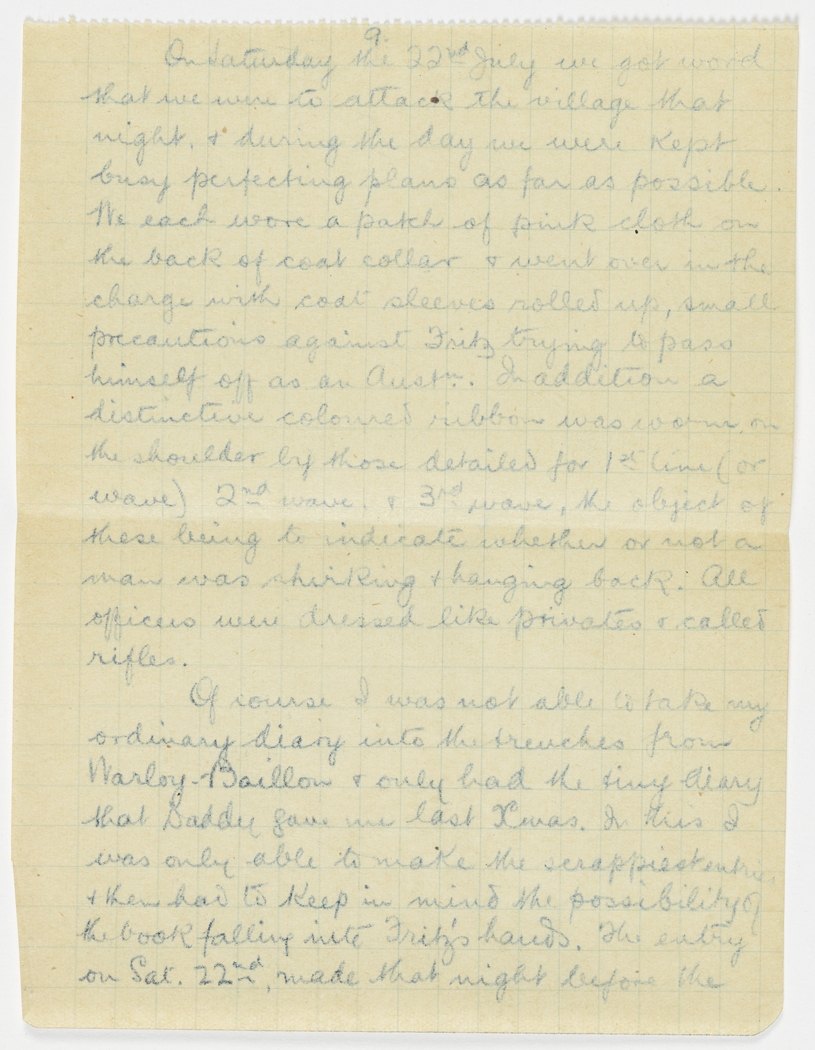 9.
On Saturday the 22nd July we got word
that we were to attack the village that
night. & during the day we were kept
busy perfecting plans as far as possible.
We each wore a patch of pink cloth on
the back of coat collar & went over in the
charge with coat sleeves rolled up, small
precautions against Fritz trying to pass
himself off as an Austn. In addition a
distinctive coloured ribbon was worn on
the shoulder by those detailed for 1st line (or
wave) 2nd wave. & 3rd wave, the object of
these being to indicate whether or not a
man was shirking & hanging back. All
officers were dressed like privates & called
rifles.
Of course I was not able to take my
ordinary diary into the trenches from
Warloy-Baillon & only had the tiny diary
that Daddy gave me last Xmas. In this I
was only able to make the scrappiest entries
& then had to keep in mind the possibility of
the book falling into Fritz's hands. The entry
on Sat. 22nd, made that night before the